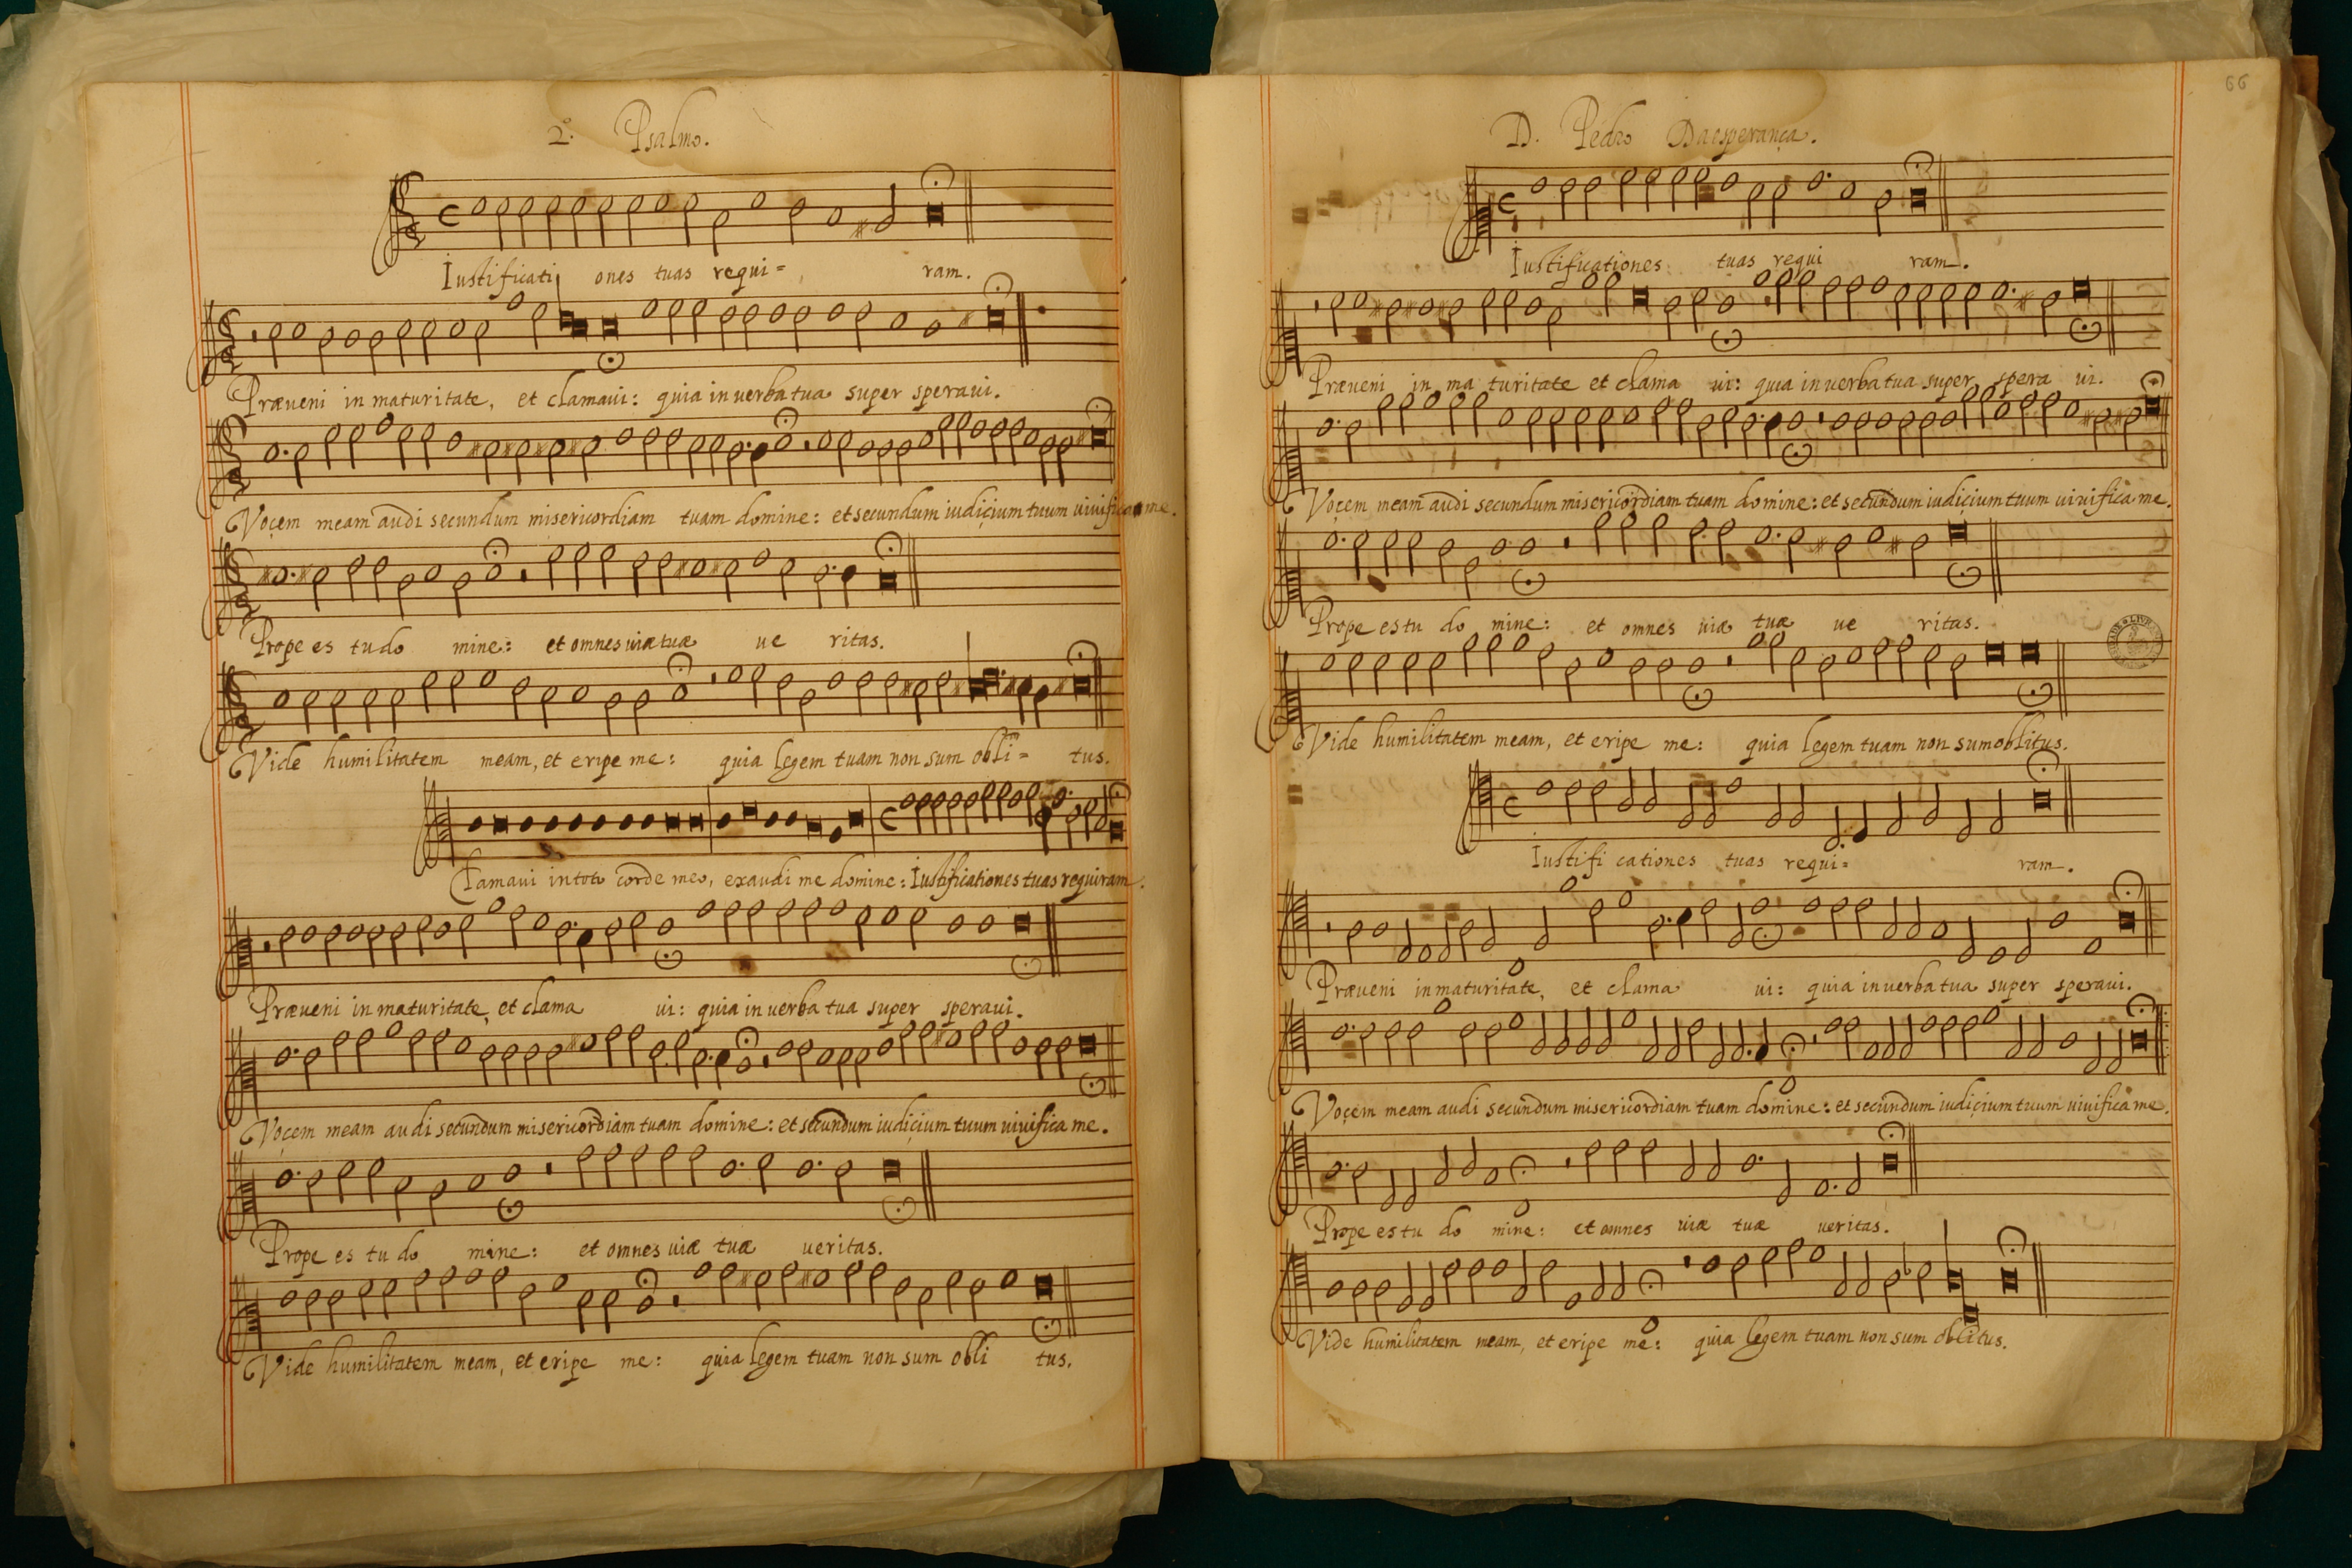 2º. Psalmo.
Iustificationes tuas requi= ram.
Præueni in maturitate, et clamaui: quia in uerba tua super speraui.
Voçem meam audi secundum misericordiam tuam domine: et secundum iudiçium tuum uiuifica me.
Prope es tu do mine: et omnes uiæ tuæ ue ritas.
Vide humilitatem meam, et eripe me: quia legem tuam non sum obli= tus.
Clamaui in toto corde meo, exaudi me domine: Iustificationes tuas requiram.
Præueni in maturitate, et clama ui: quia in uerba tua super speraui.
Voçem meam audi secundum misericordiam tuam domine: et secundum iudiçium tuum uiuifica me.
Prope es tu do mine: et omnes uiæ tuæ ueritas.
Vide humilitatem meam, et eripe me: quia legem tuam non sum obli tus.
66
D. Pedro Daesperança.
Iustificationes tuas requi ram.
Præueni in ma turitate et clama ui: quia in uerba tua super spera ui.
Voçem meam audi secundum misericordiam tuam domine: et secundum iudiçium tuum uiuifica me.
Prope es tu do mine: et omnes uiæ tuæ ue ritas.
Vide humilitatem meam, et eripe me: quia legem tuam non sum oblitus.
Iustifi cationes tuas requi= ram.
Præueni in maturitate, et clama ui: quia in uerba tua super speraui.
Voçem meam audi secundum misericordiam tuam domine: et secundum iudiçium tuum uiuifica me.
Prope es tu do mine: et omnes uiæ tuæ ueritas.
Vide humilitatem meam, et eripe me: quia legem tuam non sum oblitus.